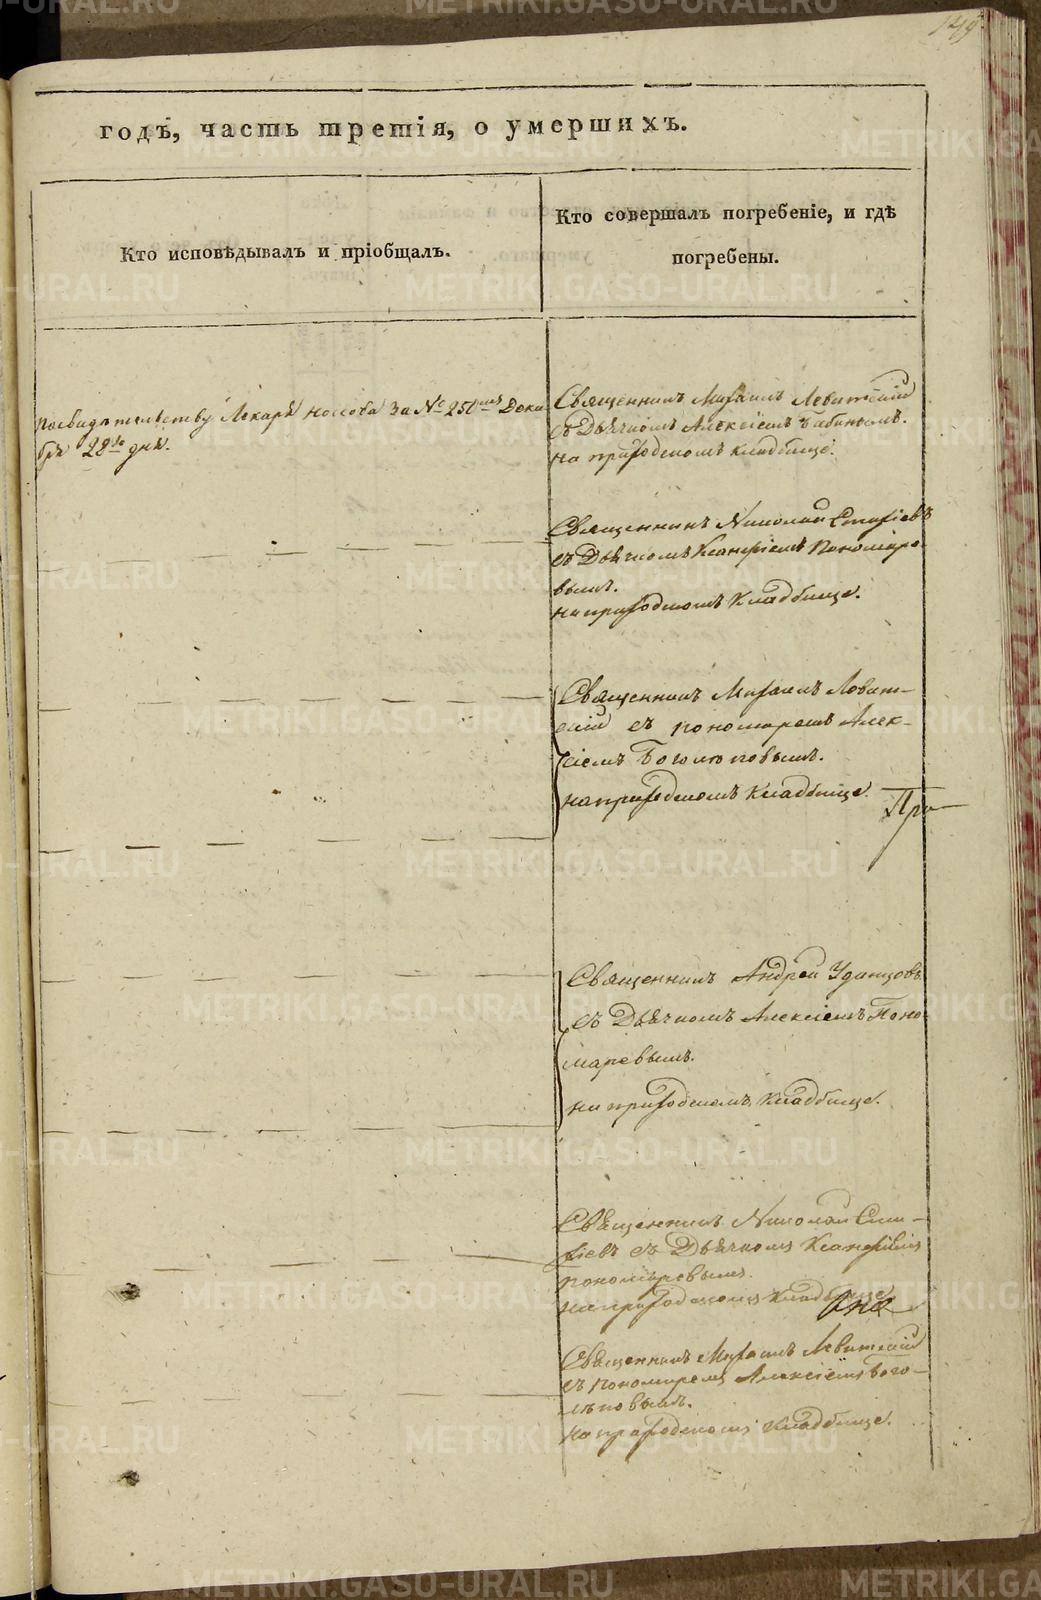 149
годъ, часть третія, о умершихъ.
Кто исповѣдывалъ и пріобщалъ.
Кто совершалъ погребеніе, и гдѣ
погребены.
Посвидѣтельству Лекаря Носова За № 250мъ Дека
бря 28го дня.
Священникъ Михаилъ Левитскій
съ Дьячкомъ Алексіемъ Бабинымъ.
на приходскомъ кладбище.
Священникъ Николай Стафіевъ
съ Дьячкомъ Ксанфіемъ Пономаре
вымъ.
на приходскомъ Кладбище.
Священникъ Михаилъ Левит–
скій съ пономаремъ Алек–
сіемъ Боголюповымъ.
на приходскомъ Кладбище.
При
Священникъ Андрей Удинцовъ
съ Дьячкомъ Алексіемъ Поно
маревымъ.
на приходскомъ Кладбище.
Священникъ Николай Ста–
фіевъ съ Дьячкомъ Ксанфіемъ
пономаревымъ.
на приходскомъ Кладбище.
Священникъ Михаилъ Левитскій
съ пономаремъ Алексіемъ Бого–
люповымъ.
на приходскомъ Кладбище.
METRIKI.GASO-URAL.RU